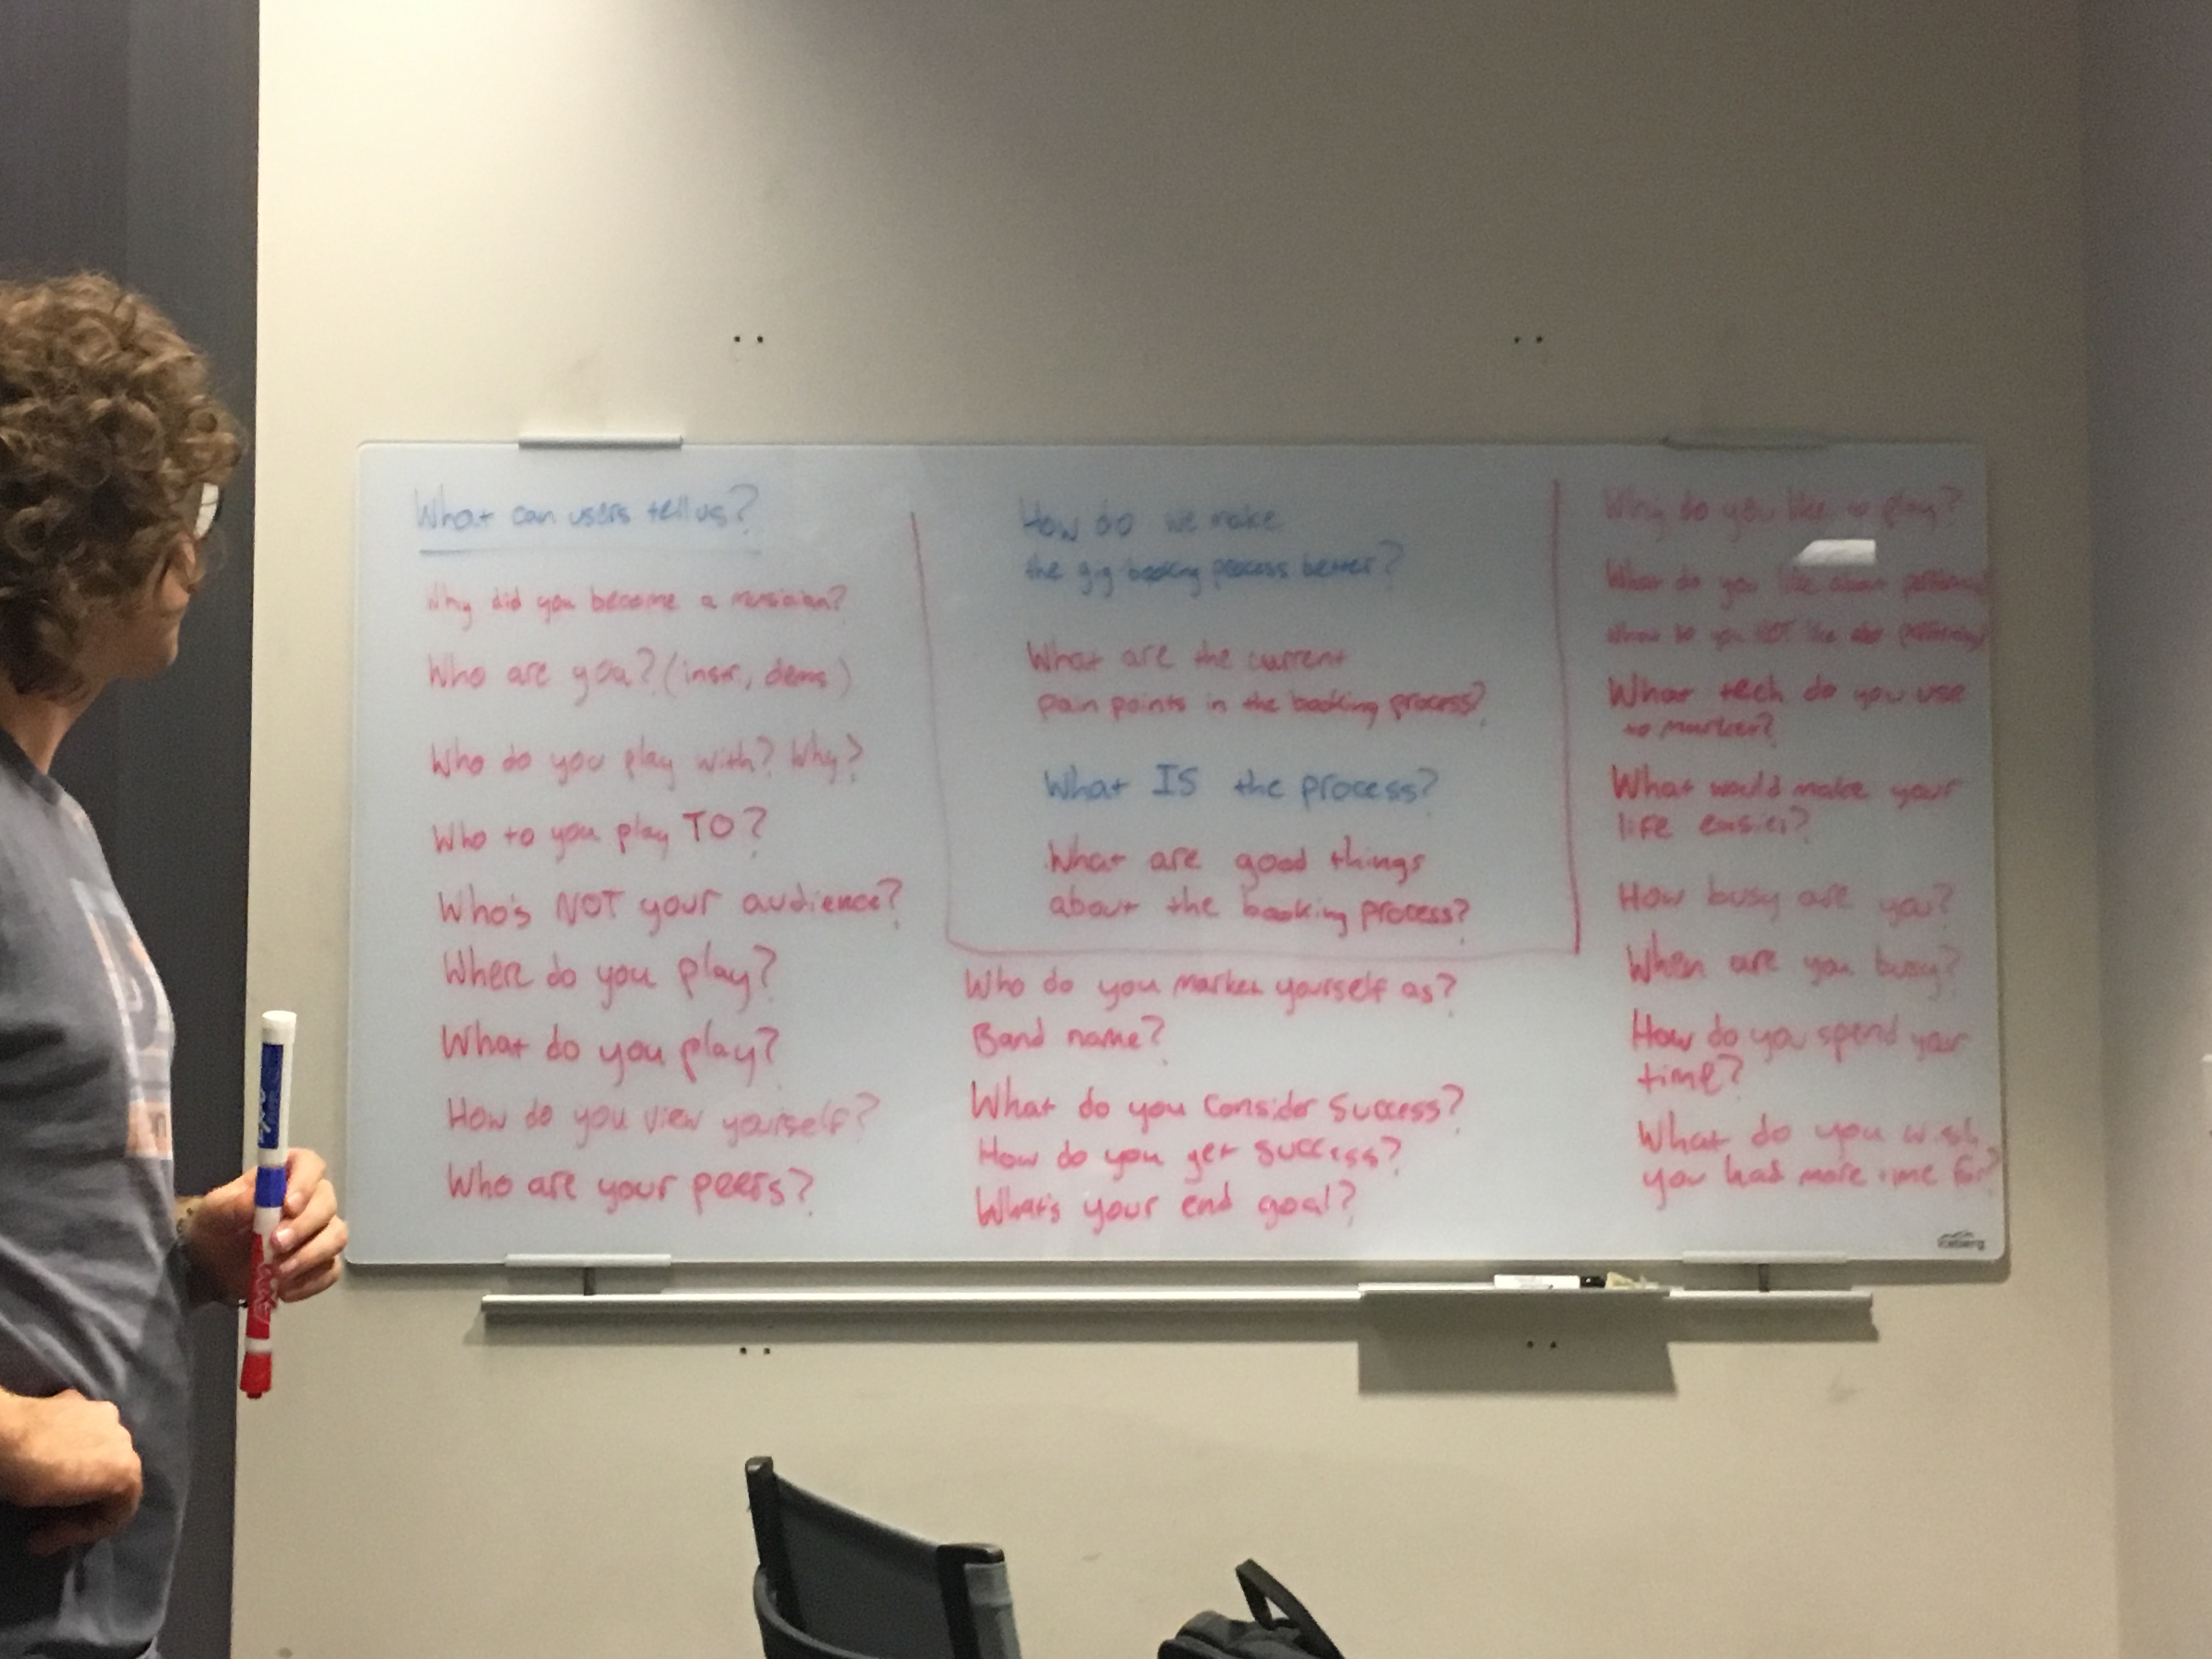 What can users tell us?
Why did you become a musician?
Who are you? (instr., dems)
Who do you play with? Why?
Who to you play TO?
Who's NOT your audience?
Where do you play?
What do you play?
How do you view yourself?
Who are your peers?
How do we make
the gig booking process better?
What are the current
pain points in the booking process?
What IS the process?
What are good things
about the booking process?
Who do you market yourself as?
Band name?
What do you consider success?
How do you get success?
What's your end goal?
Why do you like to play?
What do you like about performing
What do you NOT like about performing
What tech do you use
to market?
What would make your
life easier?
How busy are you?
When are you busy?
How do you spend your
time?
What do you wish
you had more time for?
EXPO
EXPO